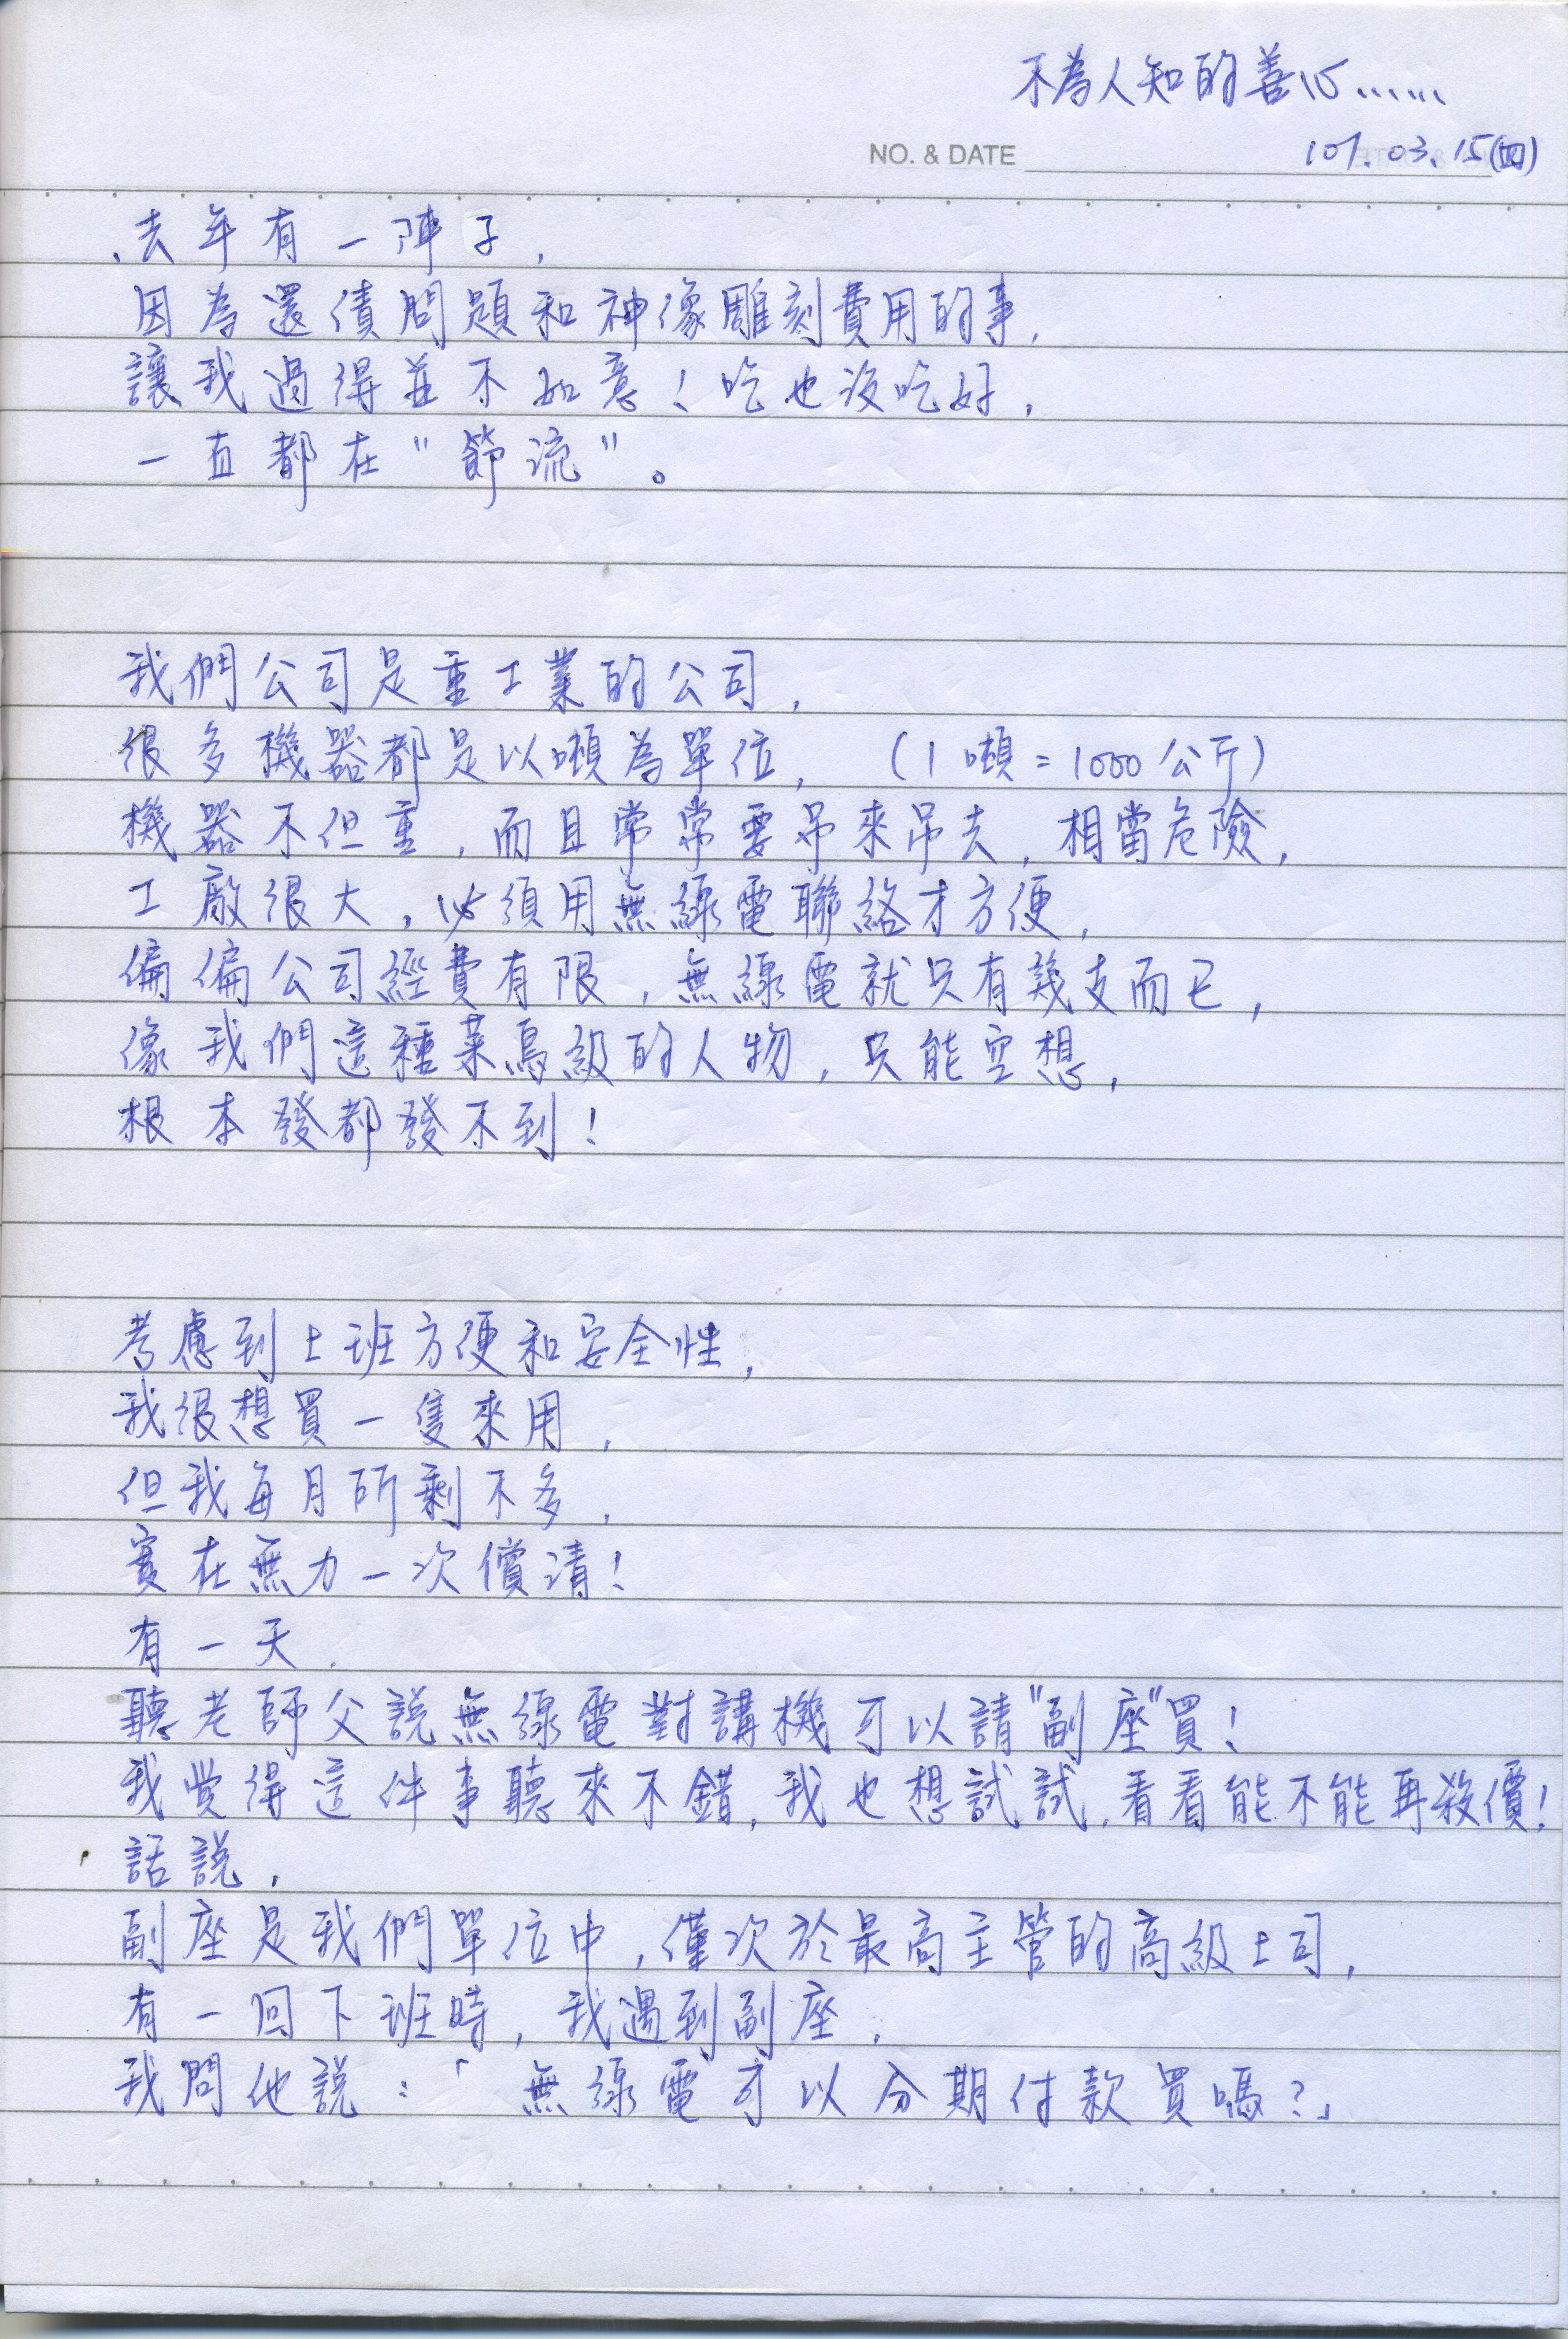 不為人知的善心……
NO. & DATE 107.03.15(四)
、去年有一陣子,
因為還債問題和神像雕刻費用的事,
讓我過得並不如意!吃也沒吃好,
一直都在"節流"。
我們公司是重工業的公司,
很多機器都是以噸為單位, (1噸=1000公斤)
機器不但重,而且常常要吊來吊去,相當危險,
工廠很大,必須用無線電聯絡才方便,
偏偏公司經費有限,無線電就只有幾支而已,
像我們這種菜鳥級的人物,只能空想,
根本發都發不到!
考慮到上班方便和安全性,
我很想買一隻來用,
但我每月所剩不多,
實在無力一次償清!
有一天,
聽老師父說無線電對講機可以請"副座"買!
我覺得這件事聽來不錯,我也想試試,看看能不能再殺價!
話說,
副座是我們單位中,僅次於最高主管的高級上司,
有一回下班時,我遇到副座,
我問他說:「無線電可以分期付款買嗎?」